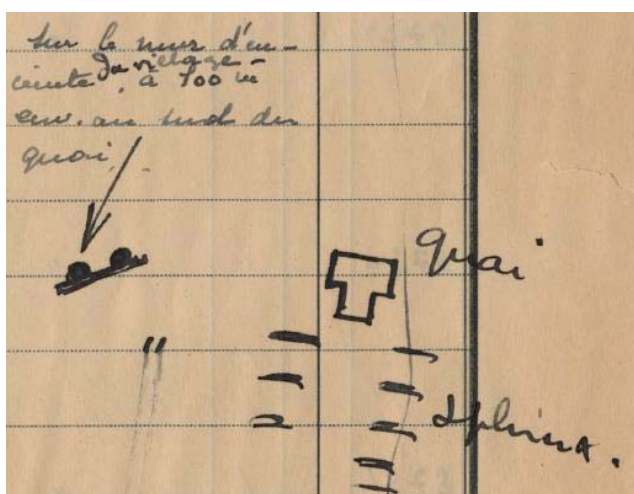 sur le mur d'en-
ceinte du village -
à 100 m
env. au sud du
quai
quai
Sphinx.